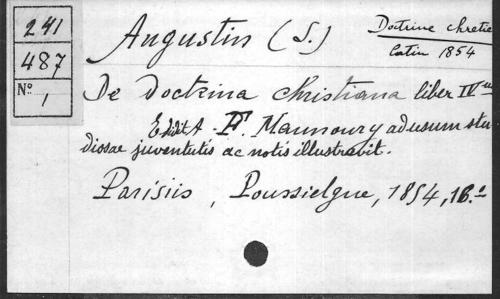 241
487
N° 1
Augustin (S.)
Doctrine chretie
latin 1854
De Doctrina Christiana liber IVus
Edidit F. Maunoury ad usum stu
diosae juventutis ac notis illustravit.
Parisiis, Poussielgue, 1854, 16.°